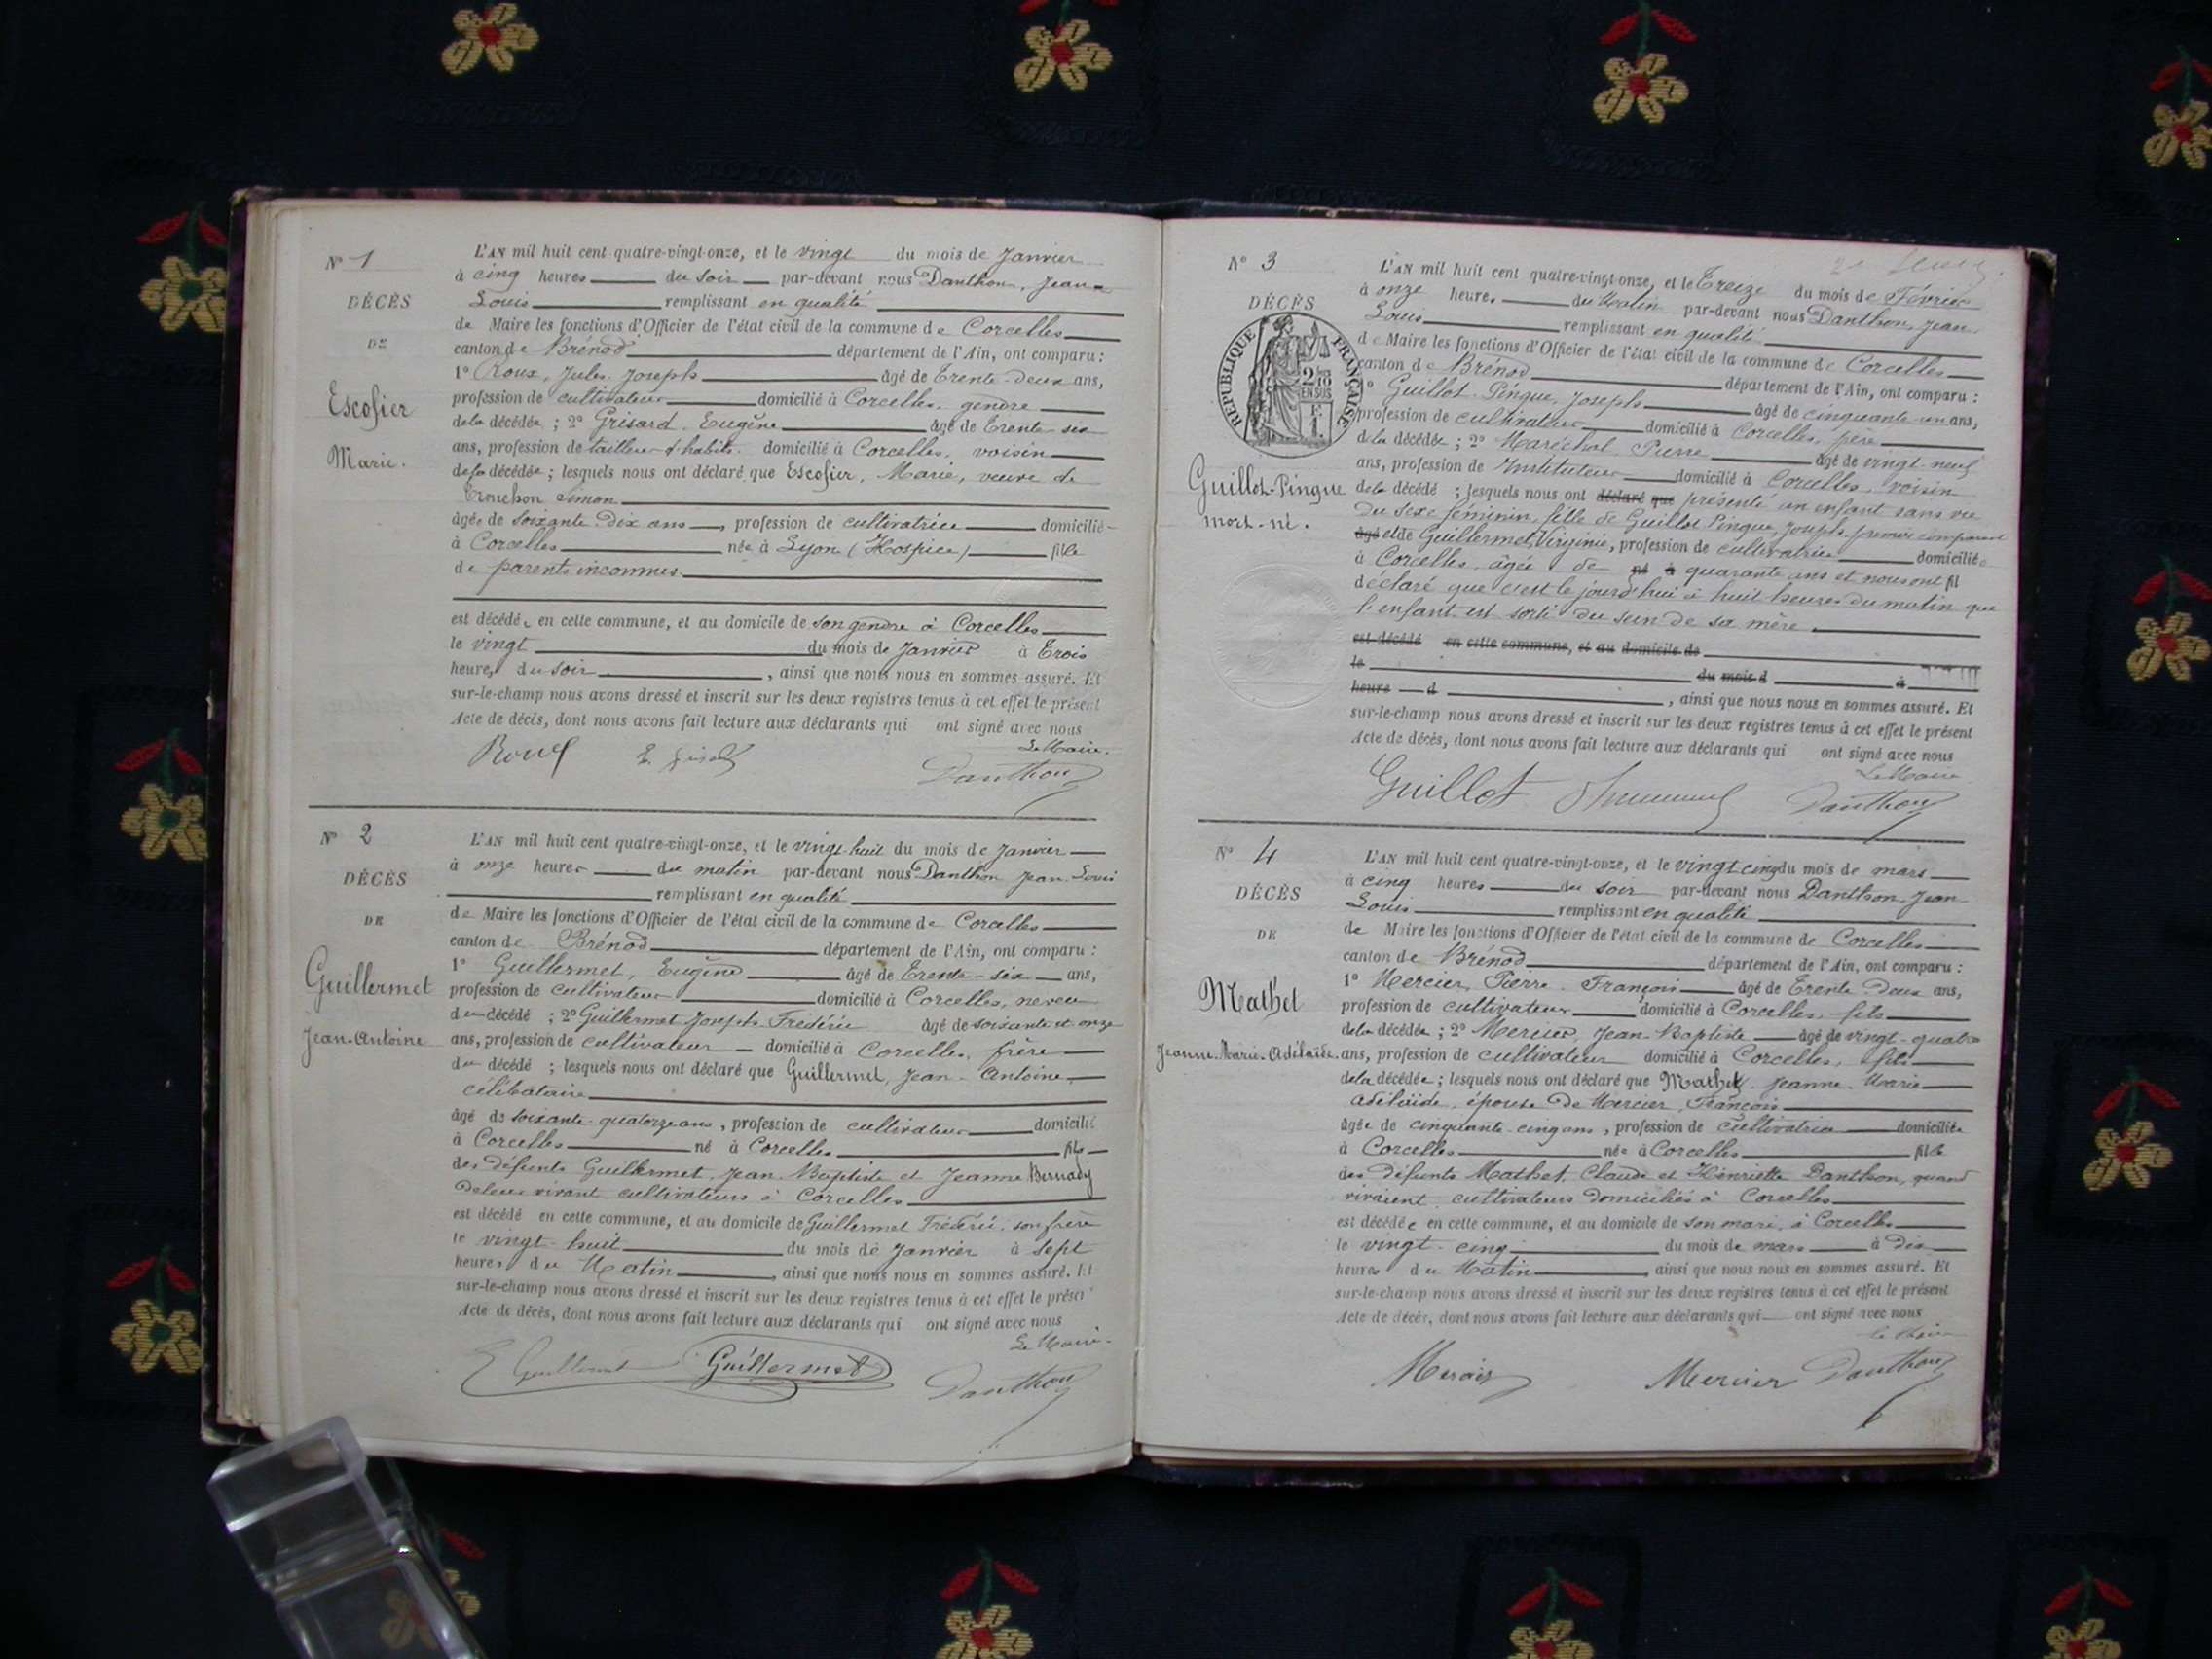 N° 1
DÉCÈS
DE
Escofier
Marie.
L'AN mil huit cent quatre-vingt-onze, et le vingt du mois de Janvier
à cinq heures du soir par-devant nous Danthon, Jean
Louis remplissant en qualité
de Maire les fonctions d'Officier de l'état civil de la commune de Corcelles
canton de Brénod département de l'Ain, ont comparu :
1° Roux, Jules Joseph âgé de Trente-deux ans,
profession de cultivateur domicilié à Corcelles, gendre
de la décédée ; 2° Grisard, Eugène âgé de Trente six
ans, profession de tailleur d'habits domicilié à Corcelles, voisin
de la décédée ; lesquels nous ont déclaré que Escofier, Marie, veuve de
Tronchon Simon
âgée de soixante-dix ans, profession de cultivatrice domiciliée
à Corcelles née à Lyon (Hospice) fille
de parents inconnus.
est décédée en cette commune, et au domicile de son gendre à Corcelles
le vingt du mois de Janvier à Trois
heures du soir, ainsi que nous nous en sommes assuré. Et
sur-le-champ nous avons dressé et inscrit sur les deux registres tenus à cet effet le présent
Acte de décès, dont nous avons fait lecture aux déclarants qui ont signé avec nous
Le Maire.
Roux Danthon
N° 2
DÉCÈS
DE
Guillermet
Jean-Antoine
L'AN mil huit cent quatre-vingt-onze, et le vingt-huit du mois de Janvier
à onze heures du matin par-devant nous Danthon Jean-Louis
remplissant en qualité
de Maire les fonctions d'Officier de l'état civil de la commune de Corcelles
canton de Brénod département de l'Ain, ont comparu :
1° Guillermet, Eugène âgé de Trente-six ans,
profession de cultivateur domicilié à Corcelles, neveu
du décédé ; 2° Guillermet Joseph Frédéric âgé de soixante et onze
ans, profession de cultivateur domicilié à Corcelles, frère
du décédé ; lesquels nous ont déclaré que Guillermet, Jean-Antoine,
célibataire
âgé de soixante-quatorze ans, profession de cultivateur domicilié
à Corcelles né à Corcelles fils
des défunts Guillermet, Jean-Baptiste et Jeanne Bernady
de leur vivant cultivateurs à Corcelles
est décédé en cette commune, et au domicile de Guillermet Frédéric, son frère
le vingt-huit du mois de Janvier à sept
heures du Matin, ainsi que nous nous en sommes assuré. Et
sur-le-champ nous avons dressé et inscrit sur les deux registres tenus à cet effet le présent
Acte de décès, dont nous avons fait lecture aux déclarants qui ont signé avec nous
Le Maire.
E Guillermet Guillermet Danthon
N° 3
DÉCÈS
RÉPUBLIQUE FRANÇAISE
2/10
EN SUS
Guillot-Pingue
mort-né.
L'AN mil huit cent quatre-vingt-onze, et le Treize du mois de Février
à onze heures du Matin par-devant nous Danthon, Jean
Louis remplissant en qualité
de Maire les fonctions d'Officier de l'état civil de la commune de Corcelles
canton de Brénod département de l'Ain, ont comparu :
1° Guillot-Pingue, Joseph âgé de cinquante-un ans,
profession de cultivateur domicilié à Corcelles, père
de la décédée ; 2° Maréchal Pierre âgé de vingt-neuf
ans, profession de Instituteur domicilié à Corcelles, voisin
de la décédé ; lesquels nous ont déclaré que présenté un enfant sans vie
du sexe féminin, fille de Guillot Pingue, Joseph, premier comparant
âgé et de Guillermet, Virginie, profession de cultivatrice domiciliée
à Corcelles, âgée de né à quarante ans et nous ont fil
déclaré que c'est le jourd'hui à huit heures du matin que
l'enfant est sorti du sein de sa mère.
est décédé en cette commune, et au domicile de
le du mois d à
heure d, ainsi que nous nous en sommes assuré. Et
sur-le-champ nous avons dressé et inscrit sur les deux registres tenus à cet effet le présent
Acte de décès, dont nous avons fait lecture aux déclarants qui ont signé avec nous
Le Maire
Guillot Danthon
N° 4
DÉCÈS
DE
Mathet
Jeanne-Marie-Adélaïde
L'AN mil huit cent quatre-vingt-onze, et le vingt cinq du mois de mars
à cinq heures du soir par-devant nous Danthon, Jean
Louis remplissant en qualité
de Maire les fonctions d'Officier de l'état civil de la commune de Corcelles
canton de Brénod département de l'Ain, ont comparu :
1° Mercier, Pierre-François âgé de Trente-Deux ans,
profession de cultivateur domicilié à Corcelles, fils
de la décédée ; 2° Mercier, Jean-Baptiste âgé de vingt-quatre
ans, profession de cultivateur domicilié à Corcelles, fils
de la décédée ; lesquels nous ont déclaré que Mathet, Jeanne-Marie
Adélaïde, épouse de Mercier, François
âgée de cinquante-cinq ans, profession de cultivatrice domiciliée
à Corcelles née à Corcelles fille
des défunts Mathet, Claude et Henriette Danthon, quand
vivaient cultivateurs domiciliés à Corcelles
est décédée en cette commune, et au domicile de son mari, à Corcelles
le vingt-cinq du mois de mars à dix
heures du Matin, ainsi que nous nous en sommes assuré. Et
sur-le-champ nous avons dressé et inscrit sur les deux registres tenus à cet effet le présent
Acte de décès, dont nous avons fait lecture aux déclarants qui ont signé avec nous
Le Maire
Mercier Mercier Danthon